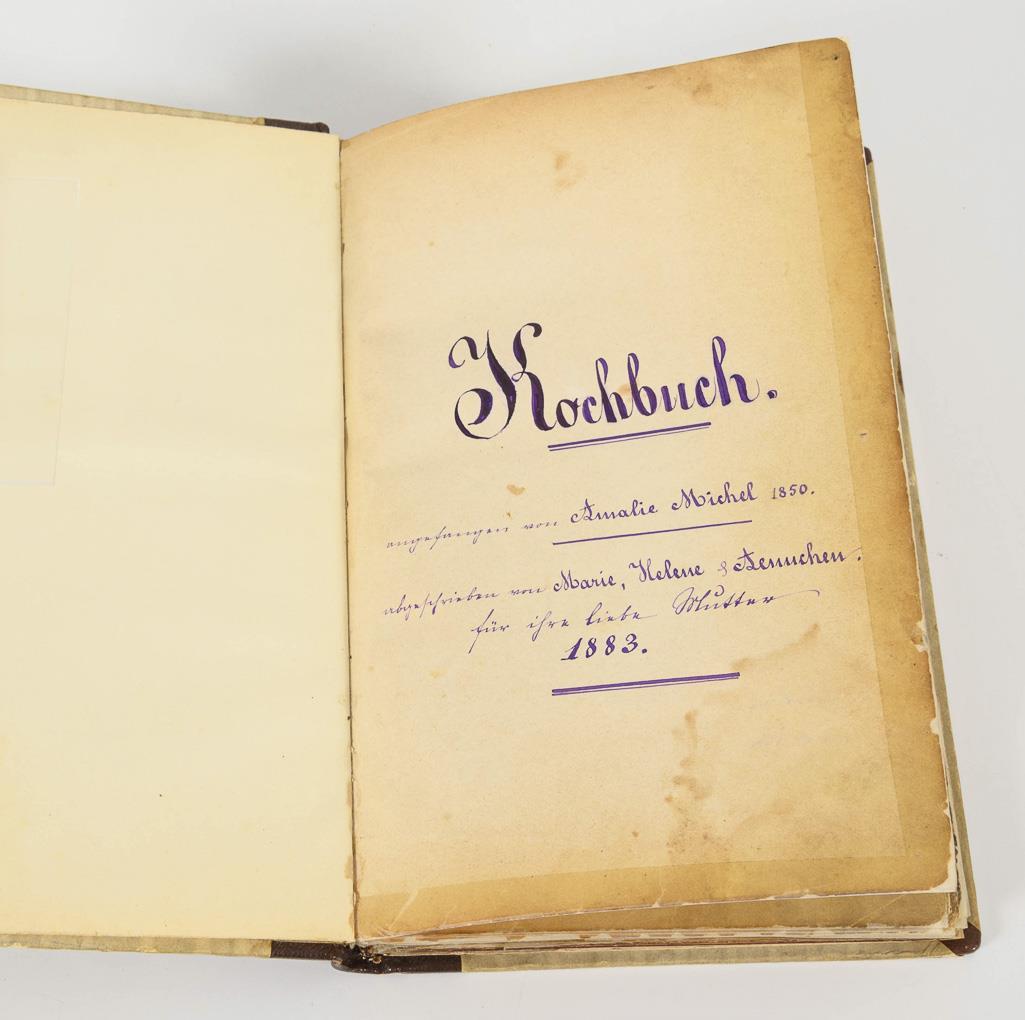 Kochbuch.
angefangen von Amalie Michel 1850.
abgeschrieben von Marie, Helene & Aennchen.
für ihre liebe Mutter
1883.